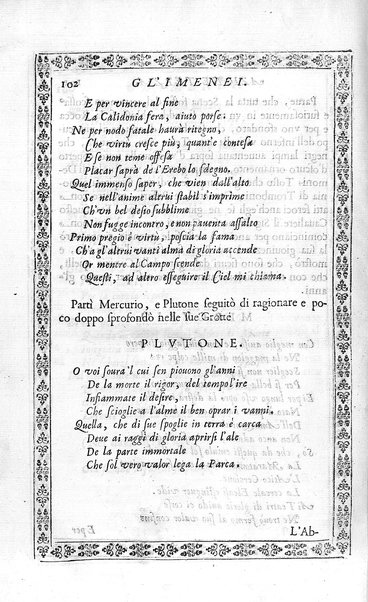 102 GL'IMENEI.
E per vincere al fine
La Calidonia fera, aiuto porse:
Ne per nodo fatale haurà ritegno,
Che virtù cresce più, quant'è contesa
E se non teme offesa
Placar saprà de l'Erebo lo sdegno.
Quel immenso saper, che vien dall'alto
Se nell'anime altrui stabil s'imprime
Ch'vn bel desio sublime
Non fugge incontro, e non pauenta assalto
Primo pregio è virtù, poscia la fama
Ch'a gl'altrui vanti alma di gloria accende
Or mentre al Campo scende
Questi, ad altro esseguire il Ciel mi chiama.
Partì Mercurio, e Plutone seguitò di ragionare e po-
co doppo sprofondò nelle sue Grotte
PLVTONE.
O voi soura'l cui sen piouono gl'anni
De la morte il rigor, del tempo l'ire
Infiammate il desire,
Che scioglie a l'alme il ben oprar i vanni.
Quella, che di sue spoglie in terra è carca
Deue ai raggi di gloria aprirsi l'ale
De la parte immortale
Che sol vero valor lega la Parca.
L'Ab-